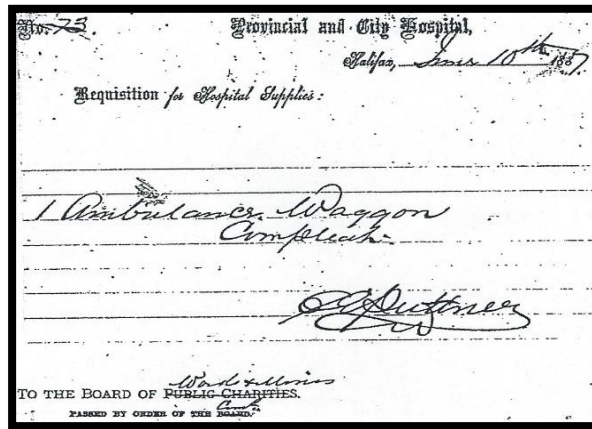 No. 73.
Provincial and City Hospital,
Halifax, June 10th 1887
Requisition for Hospital Supplies:
1 Ambulance Waggon
Compleat
Puttner
TO THE BOARD OF PUBLIC CHARITIES.
PASSED BY ORDER OF THE BOARD.